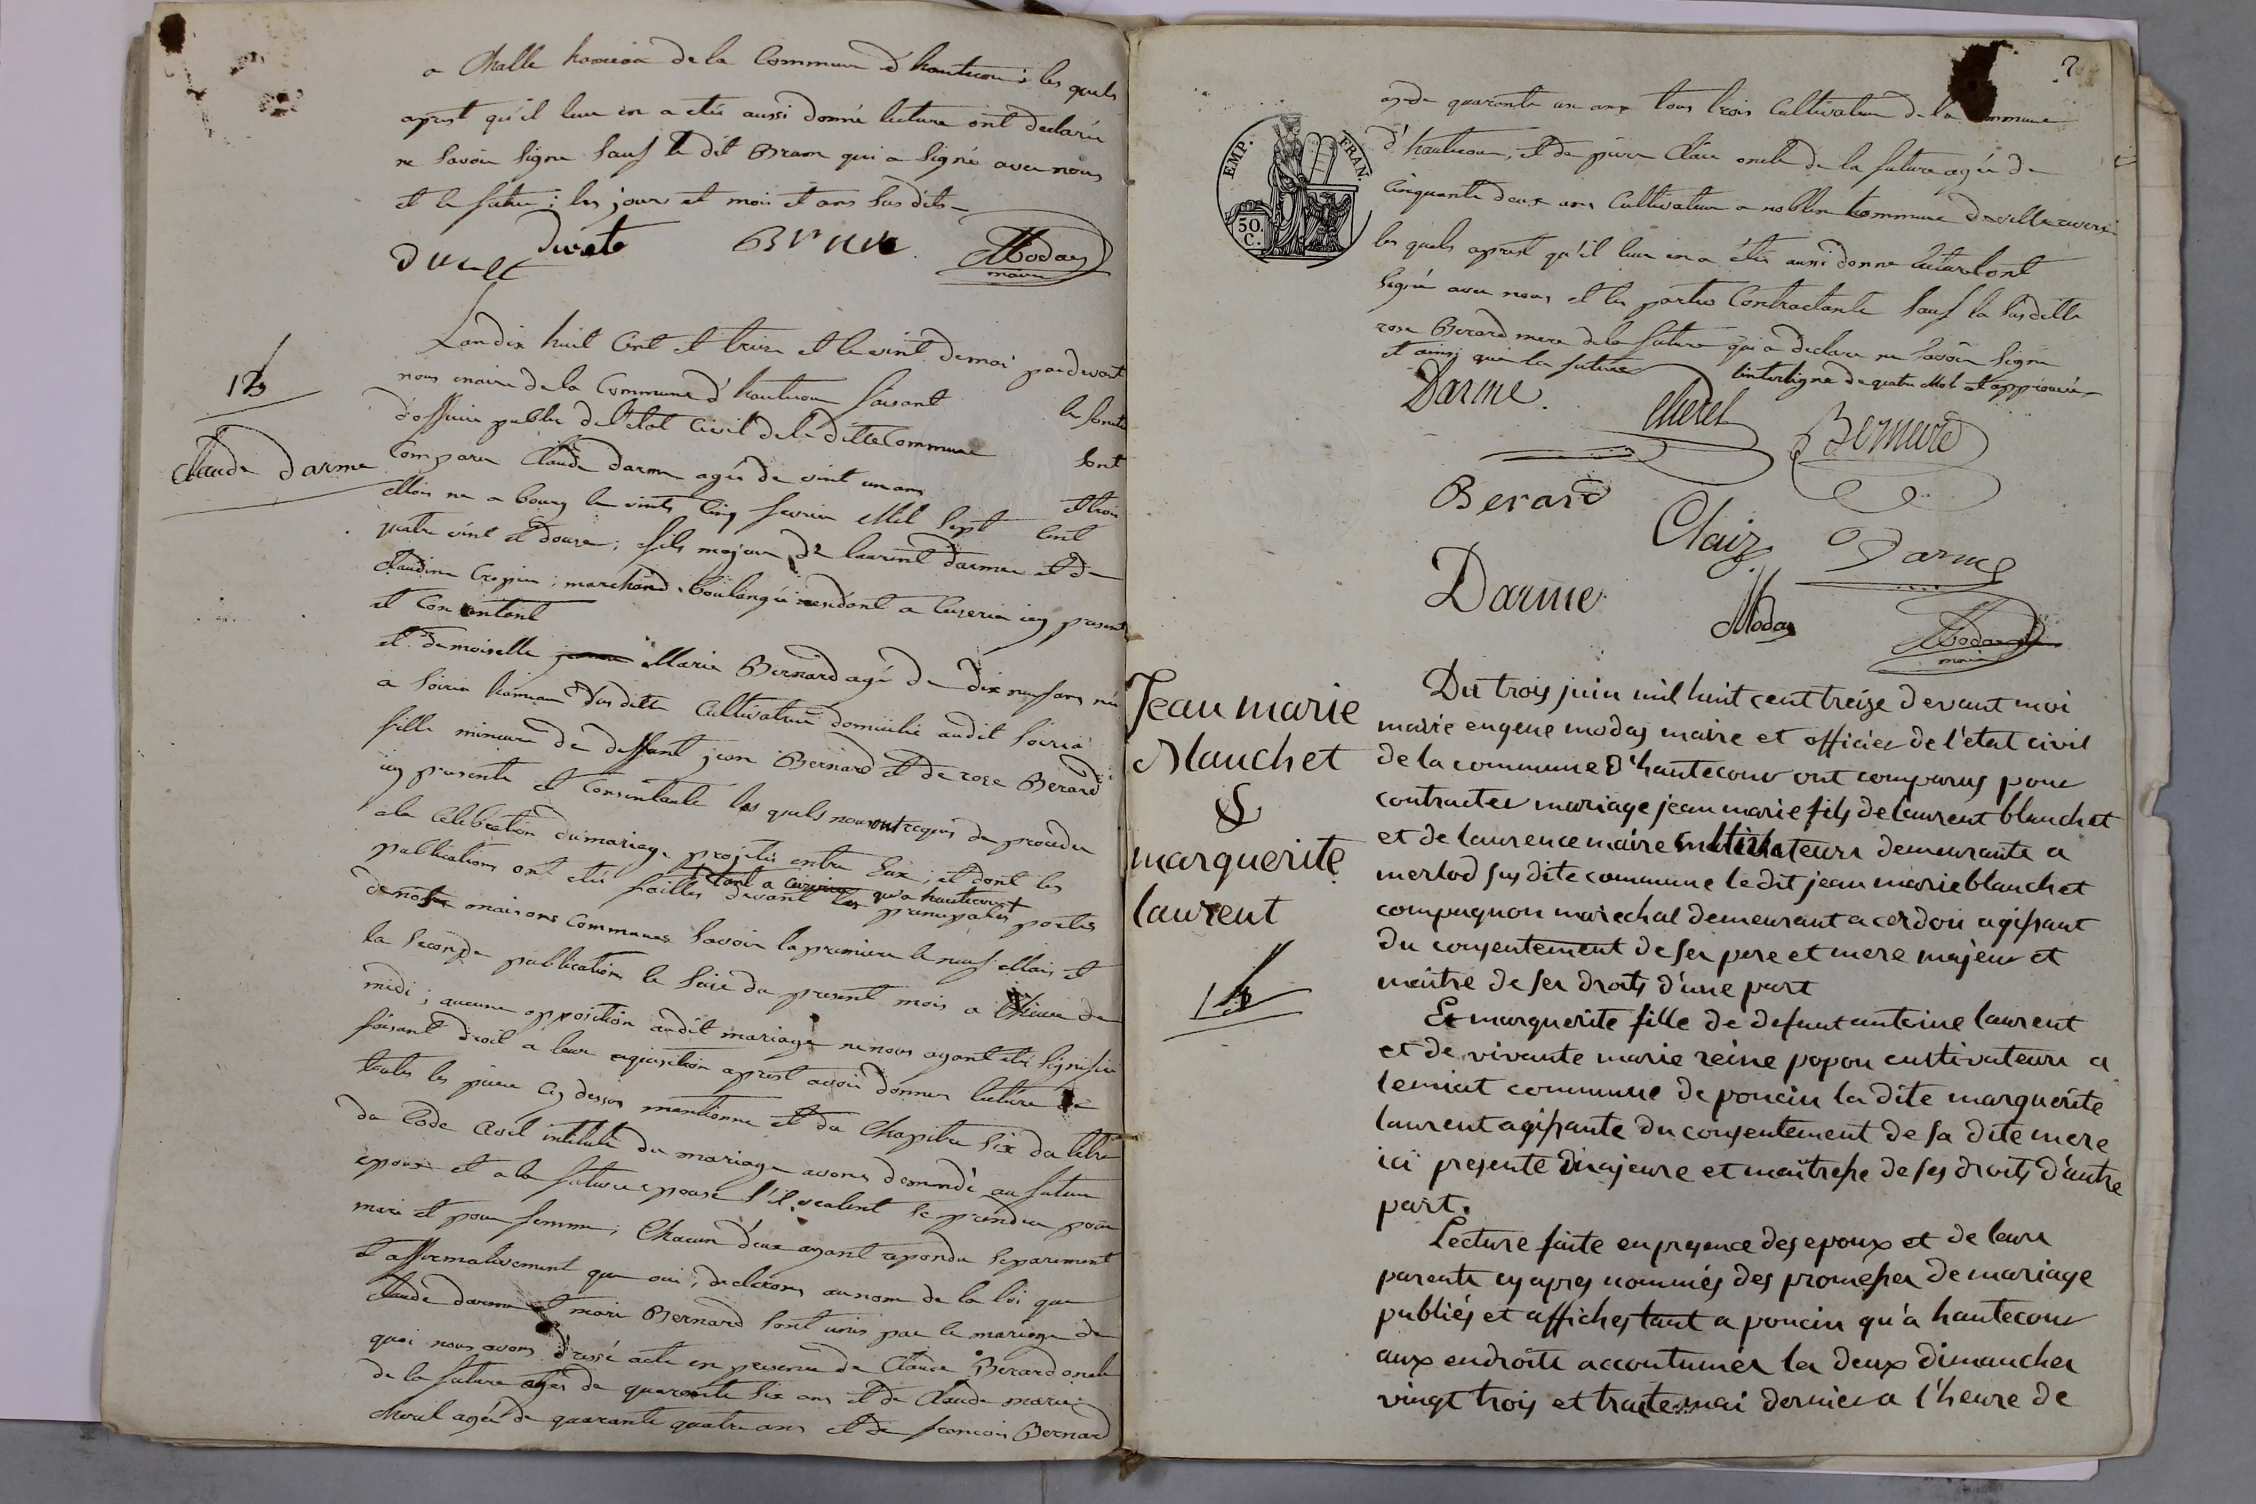 a Challe hameau de la Commune d'hautecour; les quels
aprest qu'il leur en a étés aussi donné lecture ont declarée
ne savoir signe sauf le dit Brun qui a signé avec nous
et le futur; les jour et moi et ans sus dits
Brun
Modas
maire
L'an dix huit Cent et treize et le vint de mai pardevant
nous maire de la Commune d'hautecour faisant
d'officier public de l'état Civil de la ditte Commune sont
Comparu Claude darme agés de vint un ans et trois
Mois né a bourg le vints Cinq fevrier Mil Sept Cent
quatre vint et douze; fils majeur de laurent darme et de
Claudine Crepin; marchand boulangé icy present
et Consentant
et demoiselle Marie Bernard agé de dix neuf ans né
a hameau susditte Cultivatrice domicilié audit
fille mineure de deffunt jean Bernard et de roze Berard
icy presente et Consentante les quels nous ont requis de proceder
a la Célébration du mariage projetés entre Eux; et dont les
tant a qu'a hautecourt
publications ont étés faittes devant les principales portes
de nos maisons Communes savoir la premiere le neuf Mai et
la seconde publication le saize du present mois a l'heure de
midi; aucune opposition audit mariage ne nous ayant étés signifié
faisant droit a leur requisition aprest avoir donner lecture de
toutes les piece cy dessus mentionne et du Chapitre Six du titre
du Code Civil intitulé du mariage avons demandé au futur
epoux et a la future epouse s'il veulent se prendre pour
mari et pour femme; Chacun d'eux ayant repondu separement
et affirmativement que oui; declarons au nom de la loi que
Claude darme et marie Bernard sont unis par le mariage de
quoi nous avons dressé acte en presence de Claude Berard oncle
de la future agés de quarante six ans et de Claude marie
Cherel agée de quarante quatre ans et de francois Bernard
13
Claude darme
agé de quarante un ans tous trois Cultivateur de la Commune
d'hautecour, et de pierre Clair oncle de la future agée de
Cinquante deux ans Cultivateur a noblin Commune de villereversure
les quels aprest qu'il leur en a étés aussi donne lecture ont
signée avec nous et les parties Contractante sauf la susditte
roze Berard mere de la future qui a declare ne savoir signe
et ainsi que la future l'interligne de quatre Mot est approuvée
EMP. FRAN.
50.
C.
Darme.
Cherel
Bernard
Berard
Clair
Darme
Darme
Modas
Modas
maire
Jean marie
Blanchet
&
marguerite
laurent
14
Du trois juin mil huit cent treize devant moi
marie eugene modas maire et officier de l'état civil
de la commune d'hautecour ont comparus pour
contracter mariage jean marie fils de laurent blanchet
et de laurence maire cultivateurs demeurants a
merlod sus dite commune le dit jean marie blanchet
compagnon marechal demeurant a cerdon agissant
du consentement de ses pere et mere majeur et
maître de ses droits d'une part
Et marguerite fille de defunt antoine laurent
et de vivante marie reine popon cultivateurs a
leniat commune de poncin la dite marguerite
laurent agissante du consentement de sa dite mere
ici presente majeure et maîtresse de ses droits d'autre
part.
Lecture faite en presence des epoux et de leurs
parents cy apres nommés des promesses de mariage
publiés et affiches tant a poncin qu'à hautecour
aux endroits accoutumés les deux dimanches
vingt trois et trente mai dernier a l'heure de